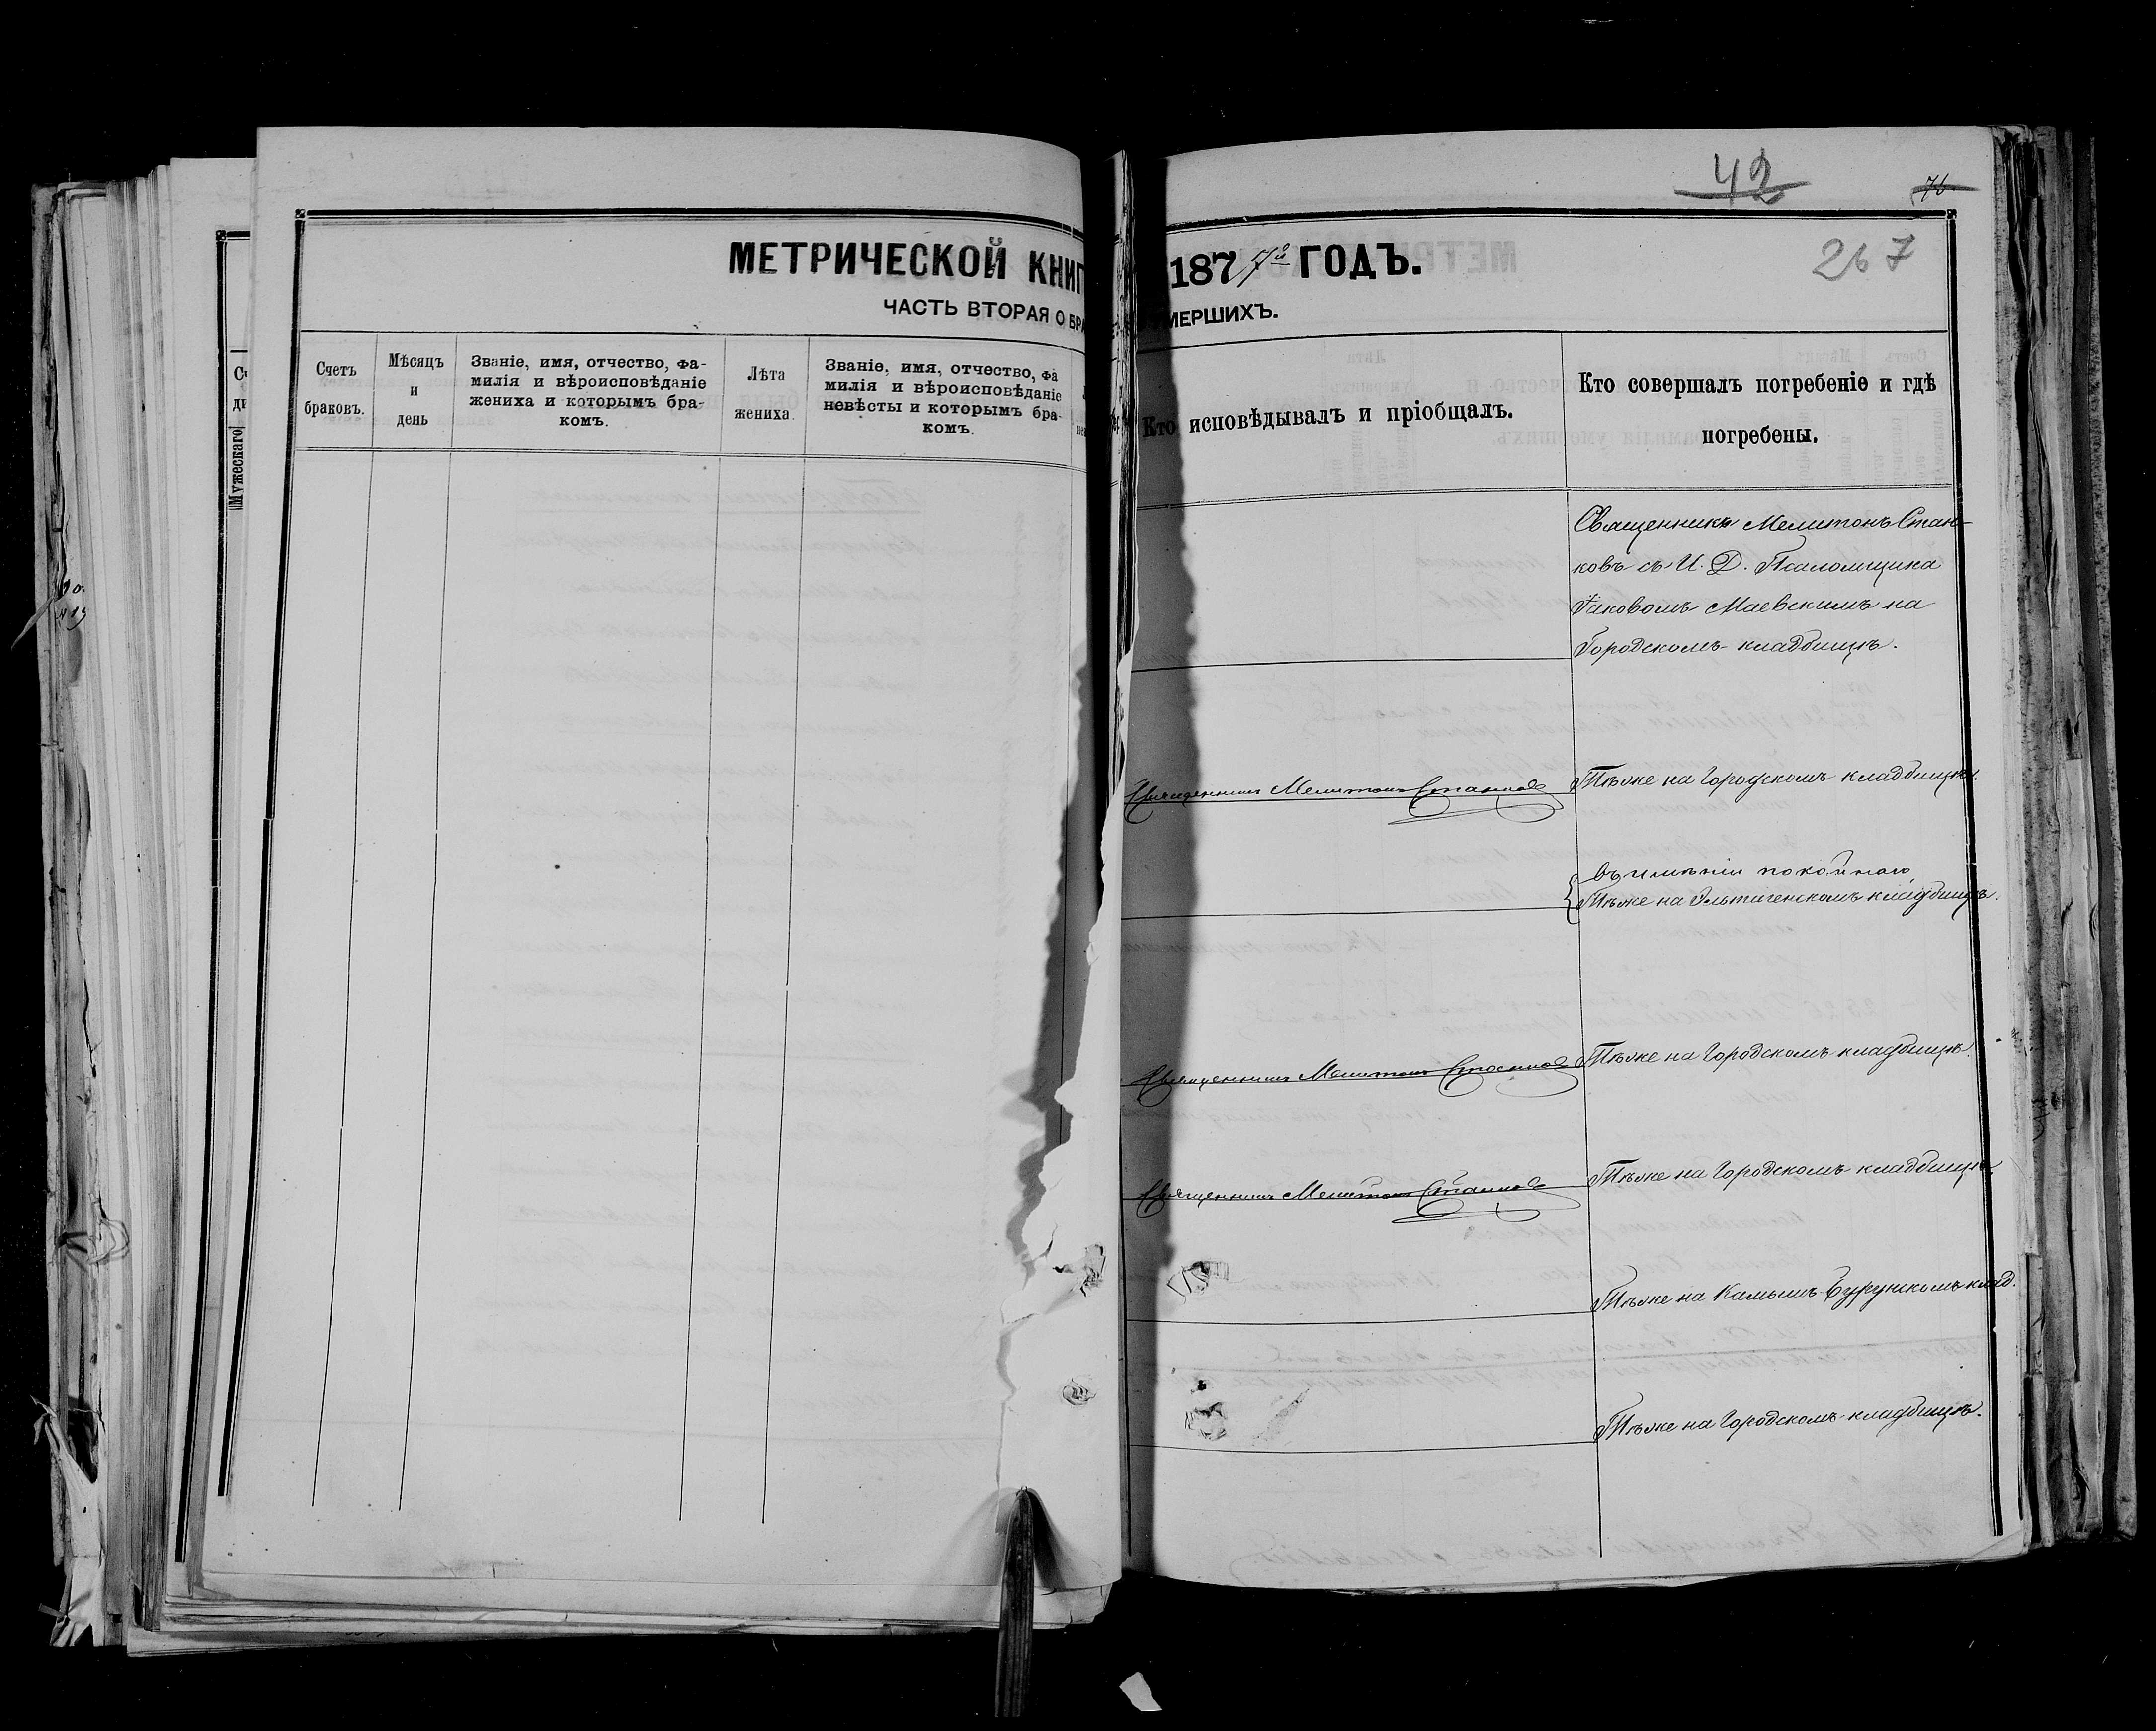 МЕТРИЧЕСКОЙ КНИГ
ЧАСТЬ ВТОРАЯ О БРА
Счетъ браковъ.
Мѣсяцъ и день
Званіе, имя, отчество, фа-
милія и вѣроисповѣданіе
жениха и которымъ бра-
комъ.
Лѣта жениха.
Званіе, имя, отчество, фа
милія и вѣроисповѣданіе
невѣсты и которымъ бра-
комъ.
Мужескаго
42
76
267
187 7й ГОДЪ.
МЕРШИХЪ.
Кто исповѣдывалъ и пріобщалъ.
Кто совершалъ погребеніе и гдѣ
погребены.
Священникъ Мелитонъ Стан-
ковъ съ И. Д. Псаломщика
Іаковомъ Маевскимъ на
Городскомъ кладбищѣ.
Священникъ Мелитонъ Станковъ
Тѣже на Городскомъ кладбищѣ.
въ имѣніи покойнаго
Тѣже на Эльтигенскомъ кладбищѣ.
Священникъ Мелитонъ Станковъ
Тѣже на Городскомъ кладбищѣ.
Священникъ Мелитонъ Станковъ
Тѣже на Городскомъ кладбищѣ
Тѣже на Камышъ-Бурунскомъ клад.
Тѣже на Городскомъ кладбищѣ.